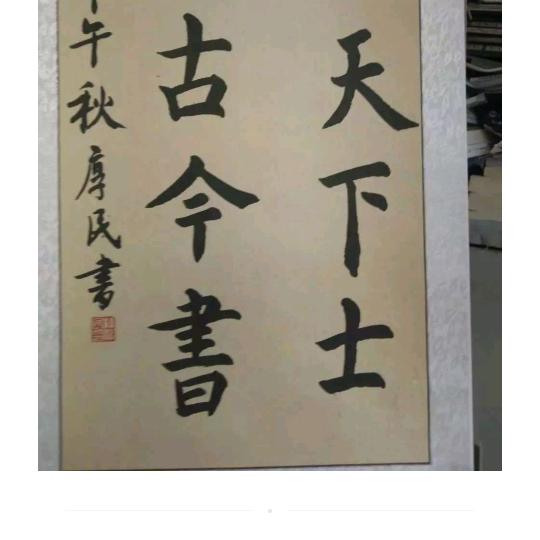 天下士
古今書
午秋厚民書